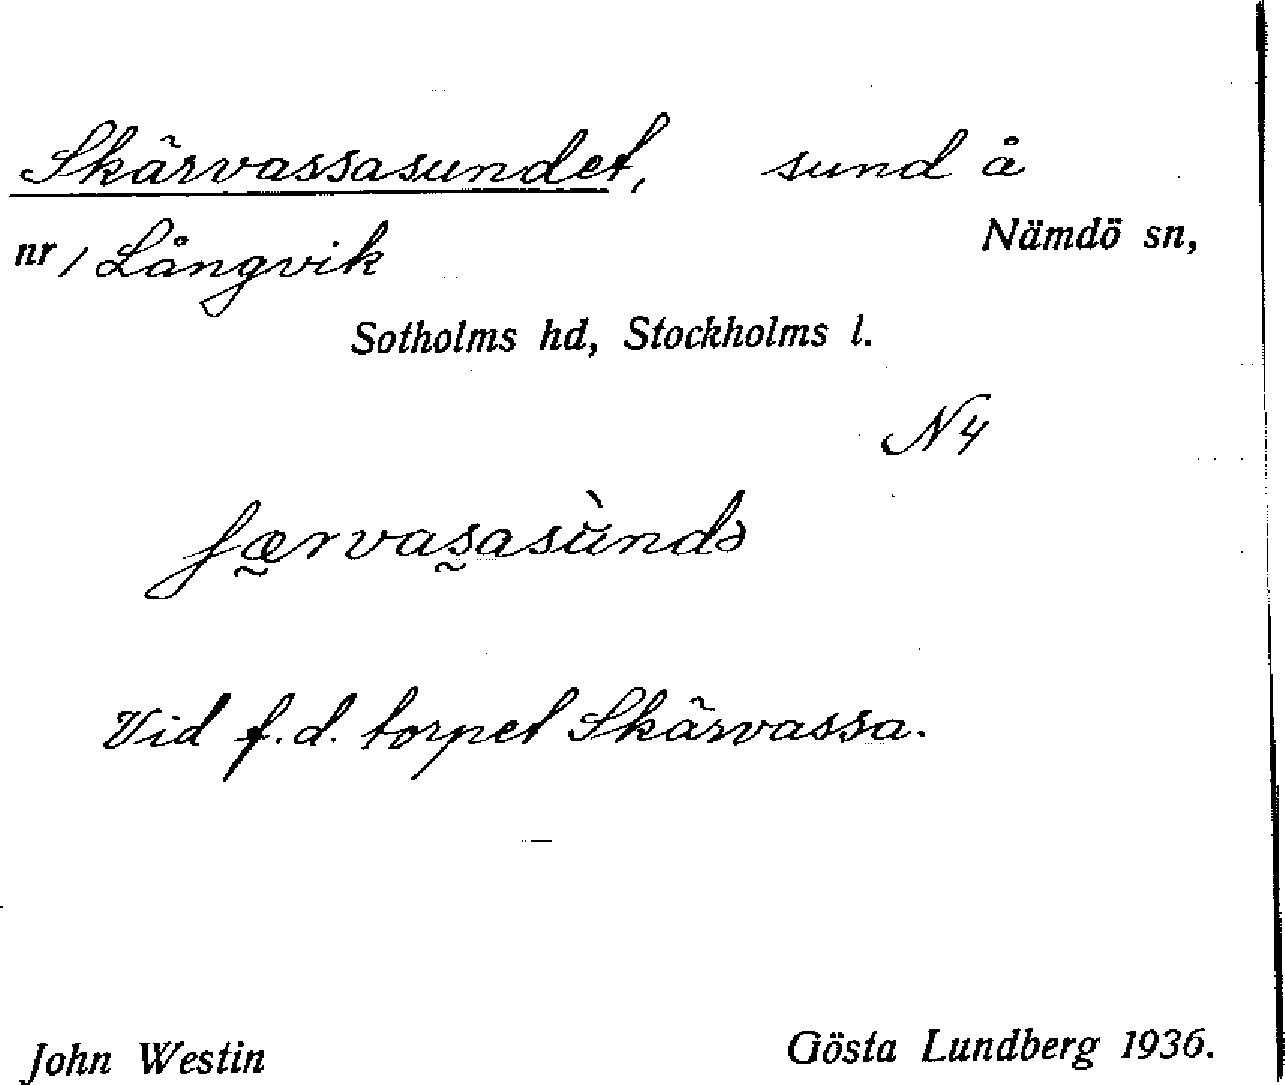 Skärvassasundet, sund å
nr 1 Långvik Nämdö sn,
Sotholms hd, Stockholms l.
N4
Vid f.d. torpet Skärvassa.
John Westin Gösta Lundberg 1936.